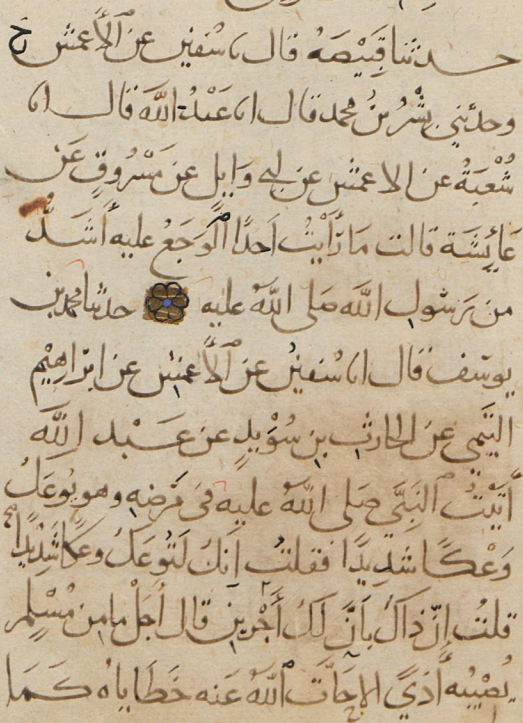 حدثنا قبيصة قال نا سفين عن الاعمش ح
وحدثني بشر بن محمد قال انا عبد الله قال انا
شعبة عن الاعمش عن ابي وايل عن مسروق عن
عايشة قالت ما رأيت احدا الوجع عليه أشد
من رسول الله صلى الله عليه حدثنا محمد بن
يوسف قال نا سفين عن الأعمش عن ابرهيم
التيمي عن الحارث بن سويد عن عبد الله
أتيت النبي صلى الله عليه في مرضه وهو يوعك
وعكا شديدا فقلت انك لتوعك وعكا شديدا
قلت إن ذاك بأن لك أجرين قال أجل ما من مسلم
يصيبه أذى الا حات الله عنه خطاياه كما